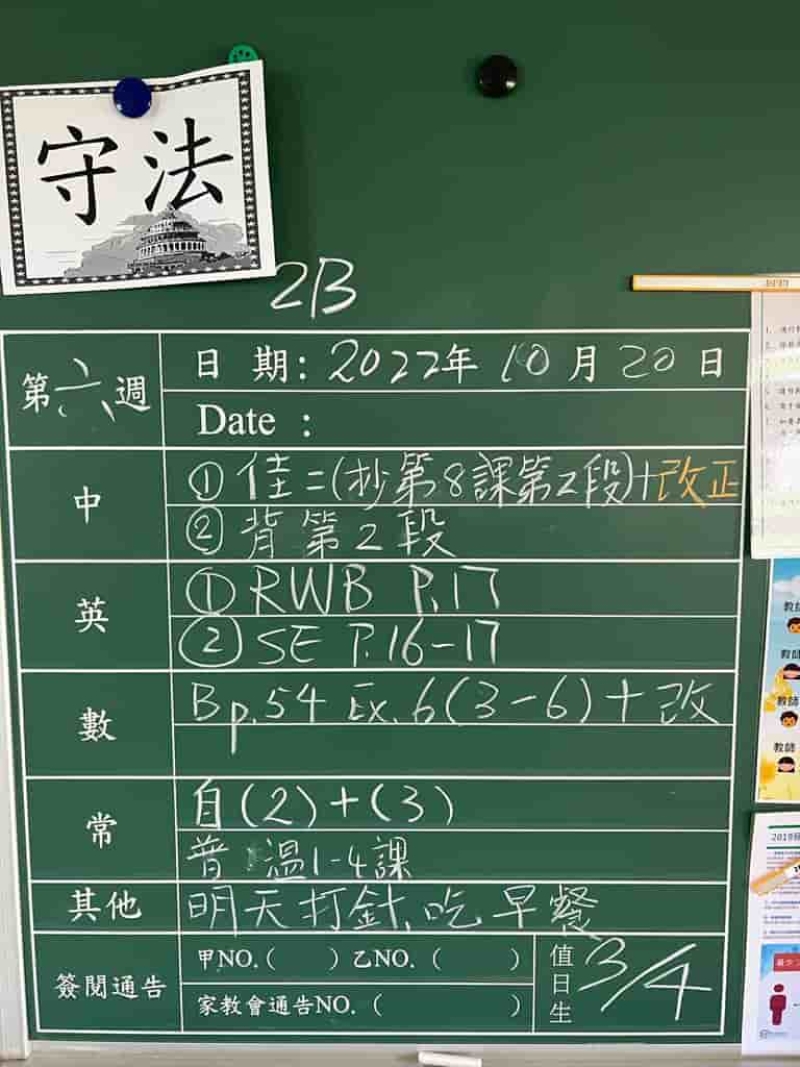 守法
2B
第六週
日期：2022年10月20日
Date：
中
①佳二(抄第8課第2段)+改正
②背第2段
英
①RWB P.17
②SE P.16-17
數
Bp.54 Ex.6(3-6)+改
常
自(2)+(3)
普：溫1-4課
其他
明天打針,吃早餐
簽閱通告
甲NO.(　　)乙NO.(　　)
家教會通告NO.(　　)
值日生
3/4
教師
教師
教師
2019